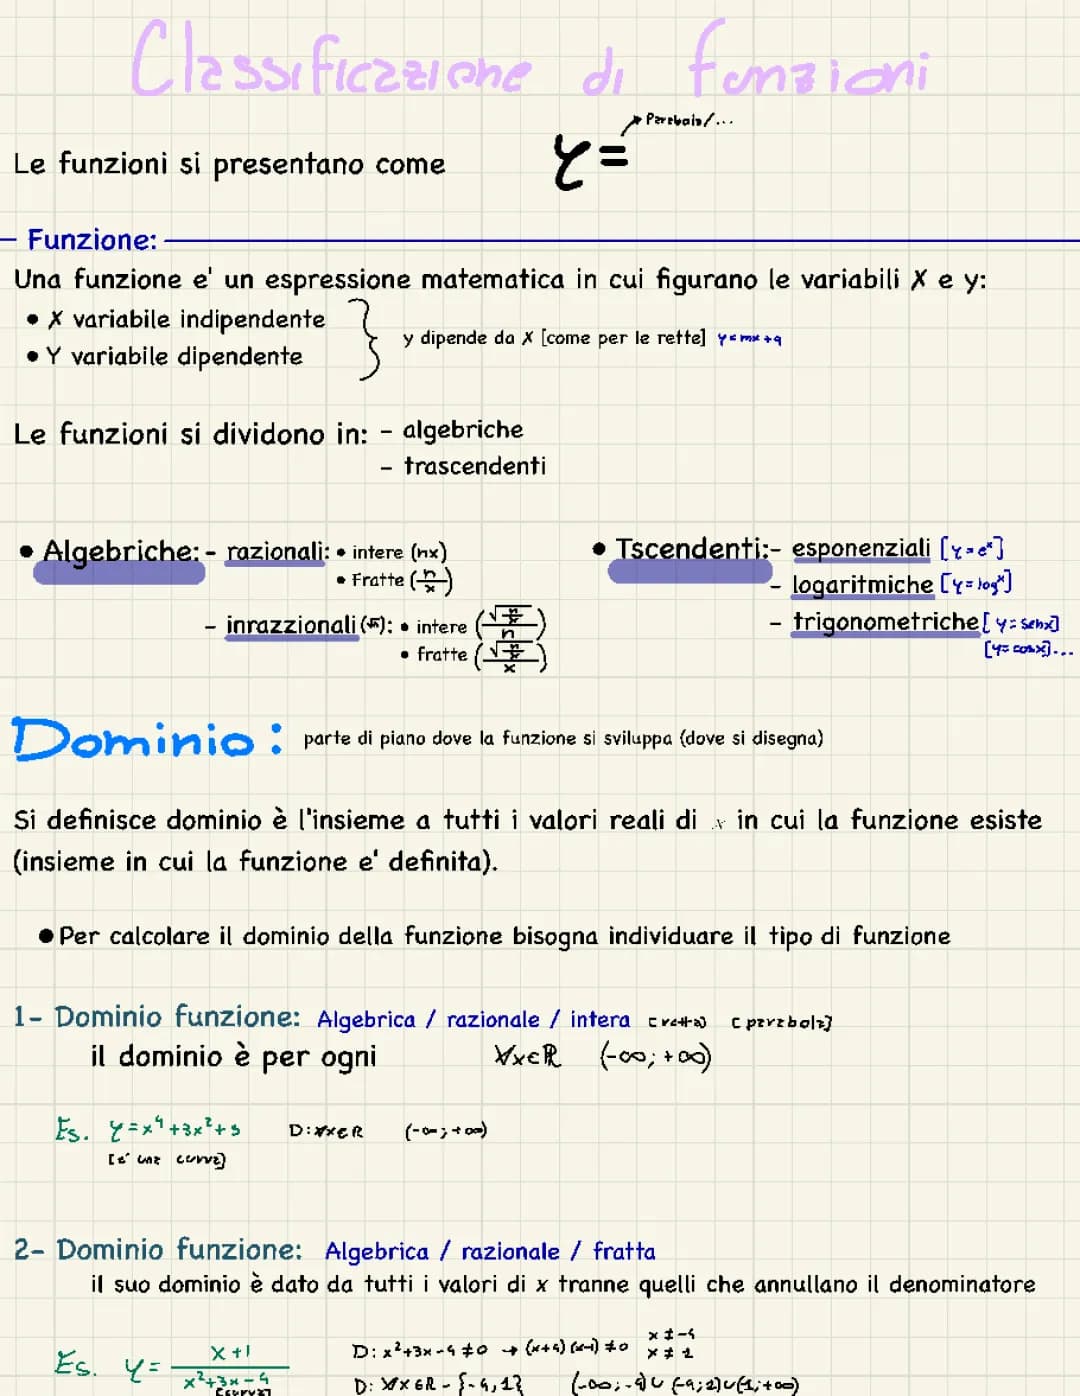 Classificazione di funzioni
Parabola/...
Le funzioni si presentano come y=
Funzione:
Una funzione e' un espressione matematica in cui figurano le variabili X e y:
• X variabile indipendente
• Y variabile dipendente
y dipende da X [come per le rette] y=mx+q
Le funzioni si dividono in: - algebriche
- trascendenti
• Algebriche: - razionali: • intere (nx)
• Fratte (n/x)
- inrazzionali (√n): • intere
• fratte
• Tscendenti:- esponenziali [y=eˣ]
- logaritmiche [y=logˣ]
- trigonometriche [y=senx]
[y=cosx]...
Dominio: parte di piano dove la funzione si sviluppa (dove si disegna)
Si definisce dominio è l'insieme a tutti i valori reali di x in cui la funzione esiste
(insieme in cui la funzione e' definita).
• Per calcolare il dominio della funzione bisogna individuare il tipo di funzione
1- Dominio funzione: Algebrica / razionale / intera [retta] [parabola]
il dominio è per ogni ∀x∈R (-∞;+∞)
Es. y=x⁴+3x²+5 D:∀x∈R (-∞;+∞)
[e' una curva]
2- Dominio funzione: Algebrica / razionale / fratta
il suo dominio è dato da tutti i valori di x tranne quelli che annullano il denominatore
Es. y= x+1 / x²+3x-4
[curva]
D: x²+3x-4≠0 → (x+4)(x-1)≠0 x≠-4 x≠1
D: ∀x∈R-{-4,1} (-∞;-4)∪(-4;1)∪(1;+∞)